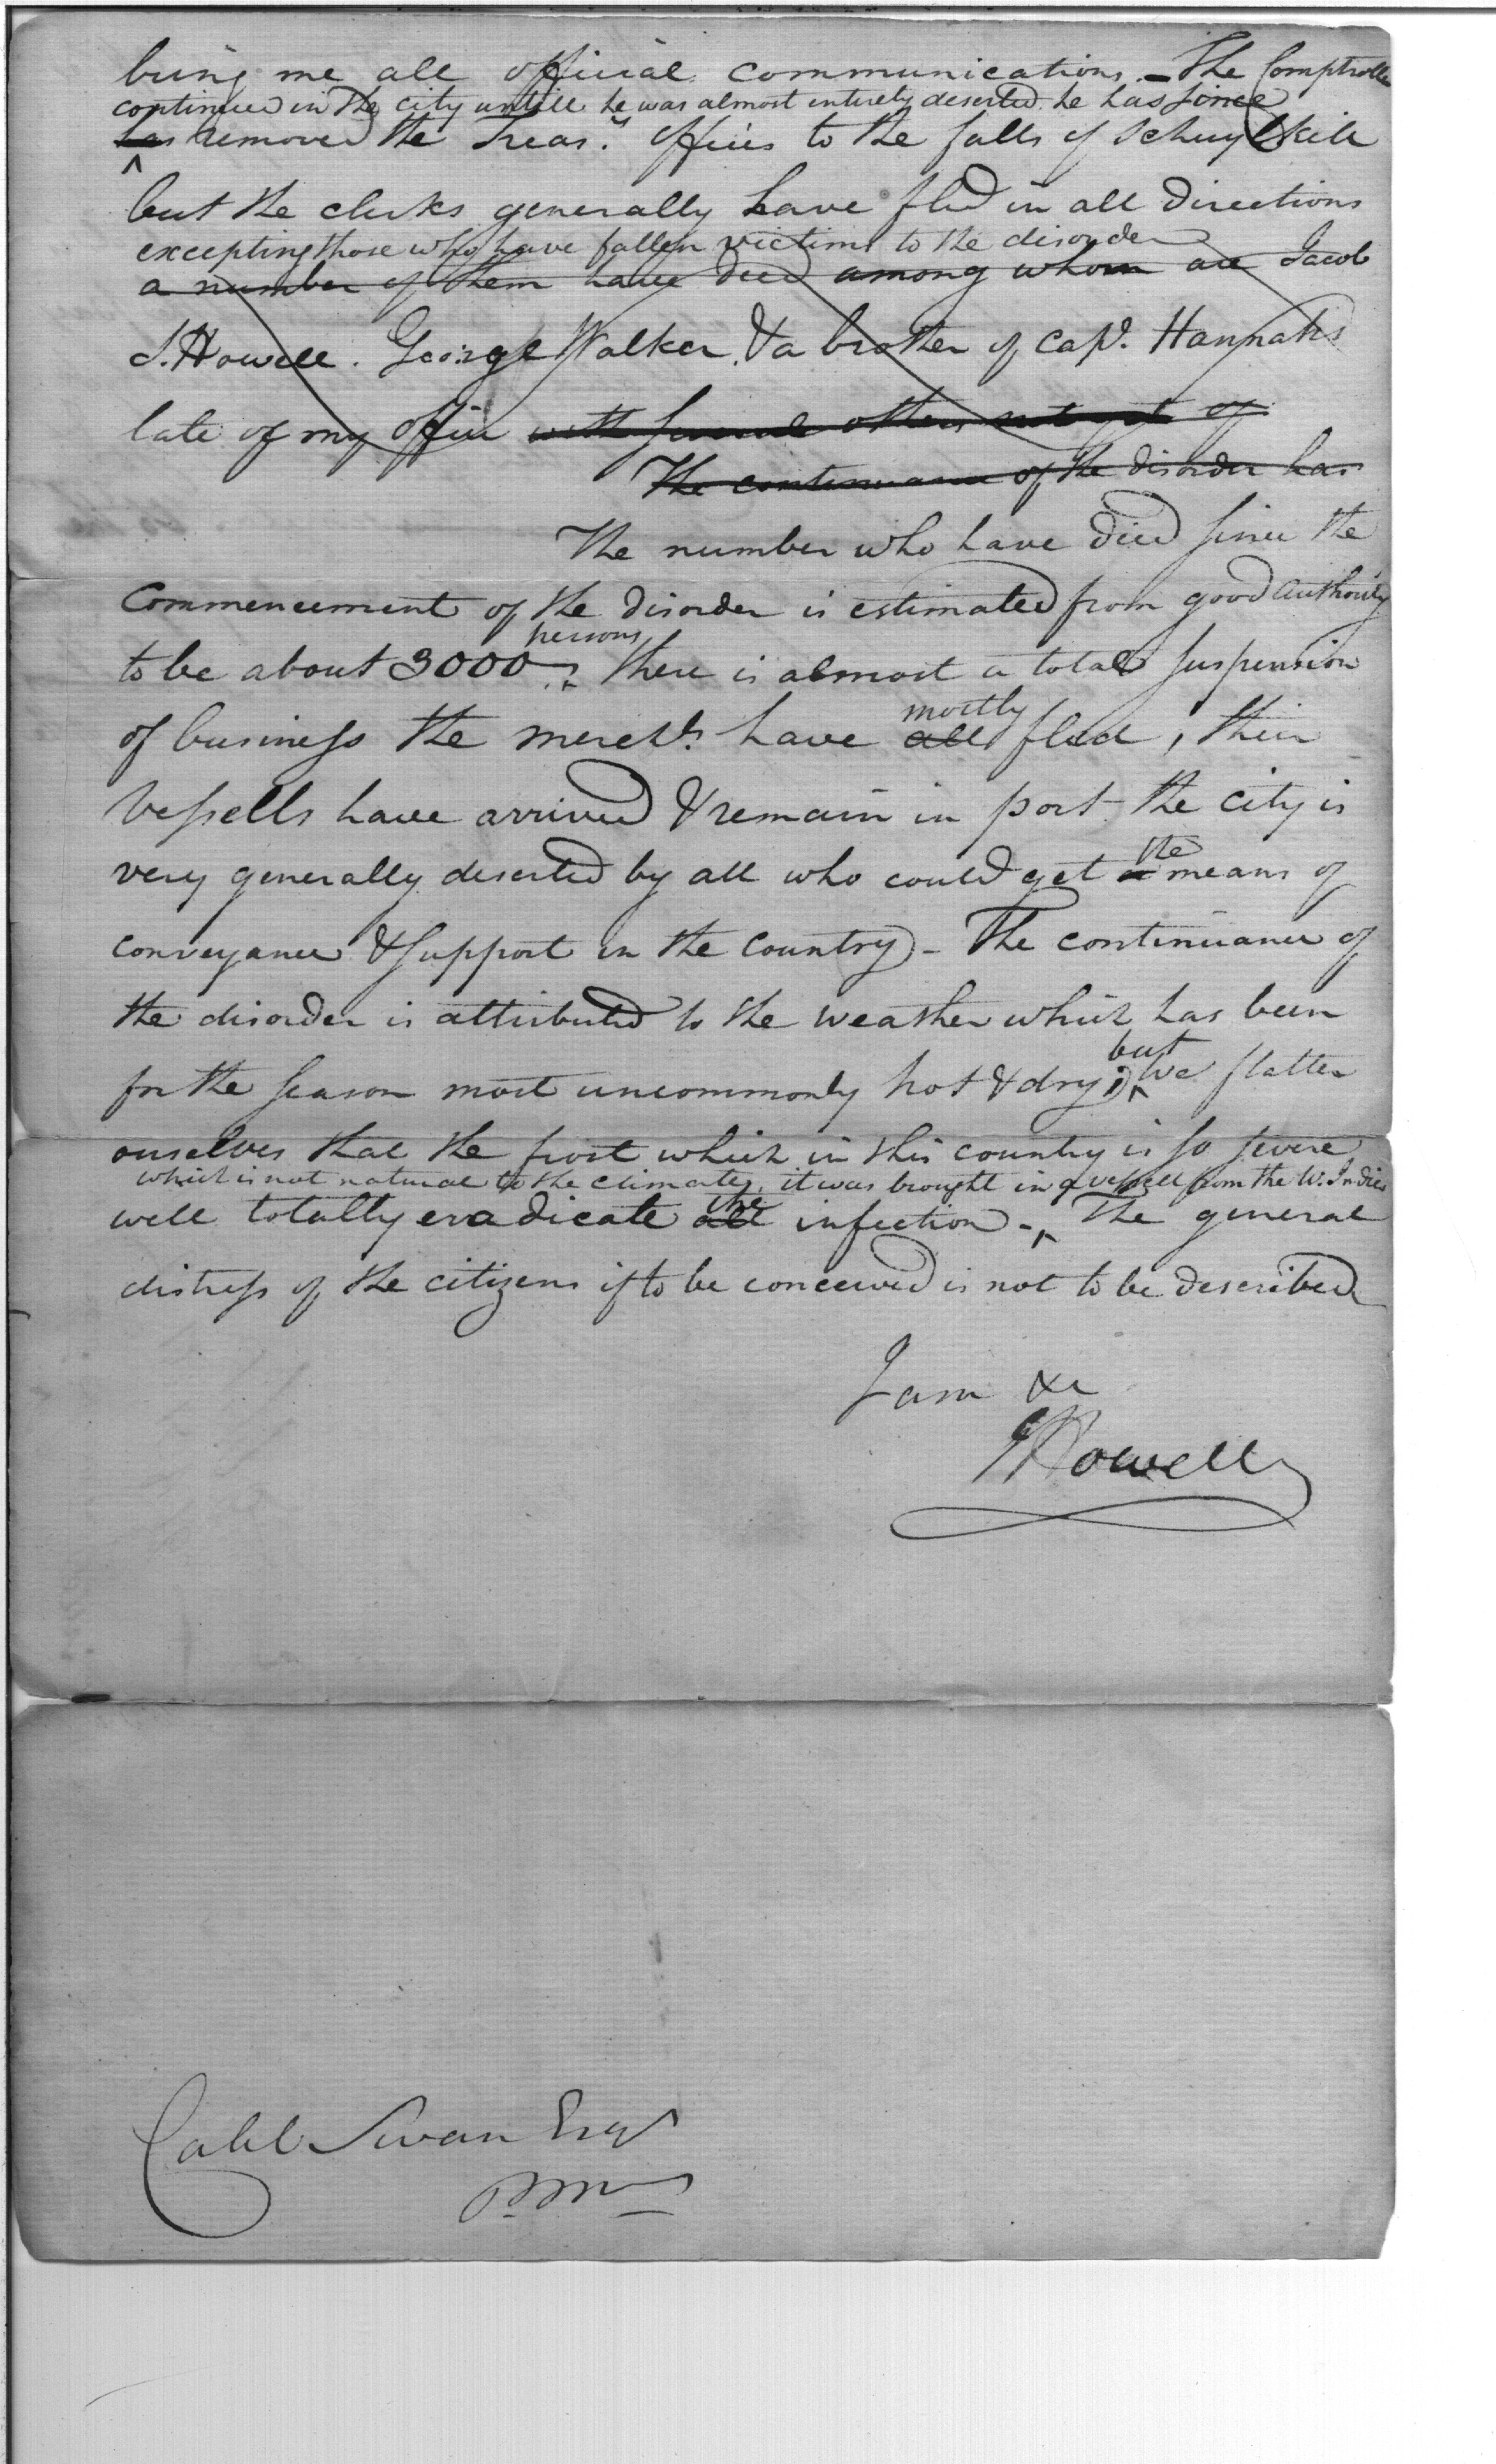 bring me all official communications. – The Comptroller
continued in the city untill he was almost entirely deserted. he has since
has removed the Treas.y offices to the falls of Schuylkill
but the clerks generally have fled in all directions
excepting those who have fallen victims to the disorder
a number of them have died among whom are Jacob
S. Howell. George Walker, & a brother of Capt. Hannahs
late of my office with several others not yet of
The continuance of the disorder has
The number who have died since the
commencement of the disorder is estimated from good authority
persons
to be about 3000 – There is almost a total suspension
mostly
of business the merchts have all fled, their
vessells have arrived & remain in port – the city is
the
very generally deserted by all who could get a means of
conveyance & support in the country – The continuance of
the disorder is attributed to the weather which has been
but
for the season most uncommonly hot & dry, we flatter
ourselves that the frost which in this country is so severe
which is not natural to the climate, it was brought in a vessell from the W. Indies
the
will totally eradicate all infection – The general
distress of the citizens if to be conceived is not to be described
I am &c
J Howell
Caleb Swan Esqr
P.M.